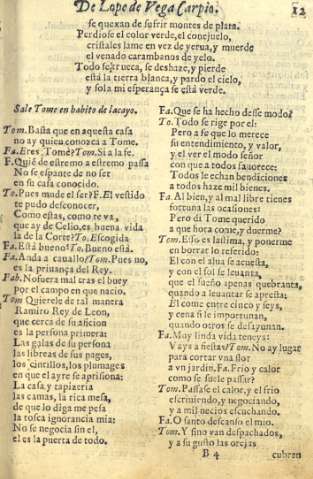 De Lope de Vega Carpio. 12
se quexan de sufrir montes de plata.
Perdiose el color verde, el conejuelo,
cristales lame en vez de yerua, y muerde
el venado carambanos de yelo.
Todo se trueca, se deshaze, y pierde
està la tierra blanca, y pardo el cielo,
y sola mi esperança se està verde.
Sale Tome en habito de lacayo.
Tom. Basta que en aquesta casa
no ay quien conozca a Tome.
Fa. Eres Tome? Tom. Si a la fe.
F. Quiẽ de estremo a estremo passa
No se espante de no ser
en su casa conocido.
To. Pues mude el ser? F. El vestido
te pudo desconocer,
Como estas, como te va,
que ay de Celio, es buena vida
la de la Corte? To. Escogida
Fa. Està bueno? To. Bueno està.
Fa. Anda a cauallo? Tom. Pues no,
es la priuança del Rey.
Fab. No fuera mal tras el buey
por el campo en que nacio.
Tom Quierele de tal manera
Ramiro Rey de Leon,
que cerca de su aficion
es la persona primera:
Las galas de su persona
las libreas de sus pages,
los cintillos, los plumages
en que el ayre se aprisiona:
La casa y tapizeria
las camas, la rica mesa,
de que lo diga me pesa
la tosca ignorancia mia:
No se negocia sin el,
el es la puerta de todo.
Fa. Que se ha hecho desse modo?
To. Todo se rige por el:
Pero a fe que lo merece
su entendimiento, y valor,
y el ver el modo señor
con que a todos fauorece:
Todos le echan bendiciones
a todos haze mil bienes.
Fa. Al bien, y al mal libre tienes
fortuna las ocasiones:
Pero di Tome querido
a que hora come, y duerme?
Tom. Esso es lastima, y ponerme
en borrar lo referido:
El con el alua se acuesta,
y con el sol se leuanta,
que el sueño apenas quebranta,
quando a leuantar se apresta:
El come entre cinco y seys,
y cena si le importunan,
quando otros se desayunan.
Fa. Muy linda vida teneys:
Vays a fiestas? Tom. No ay lugar
para cortar vna flor
a vn jardin, Fa. Frio y calor
como se suele passar?
Tom. Passase el calor, y el frio
escriuiendo, y negociando,
y a mil necios escuchando.
Fa. O santo descanso el mio.
Tom. Y sino van despachados,
y a su gusto las orejas
B 4 cubren